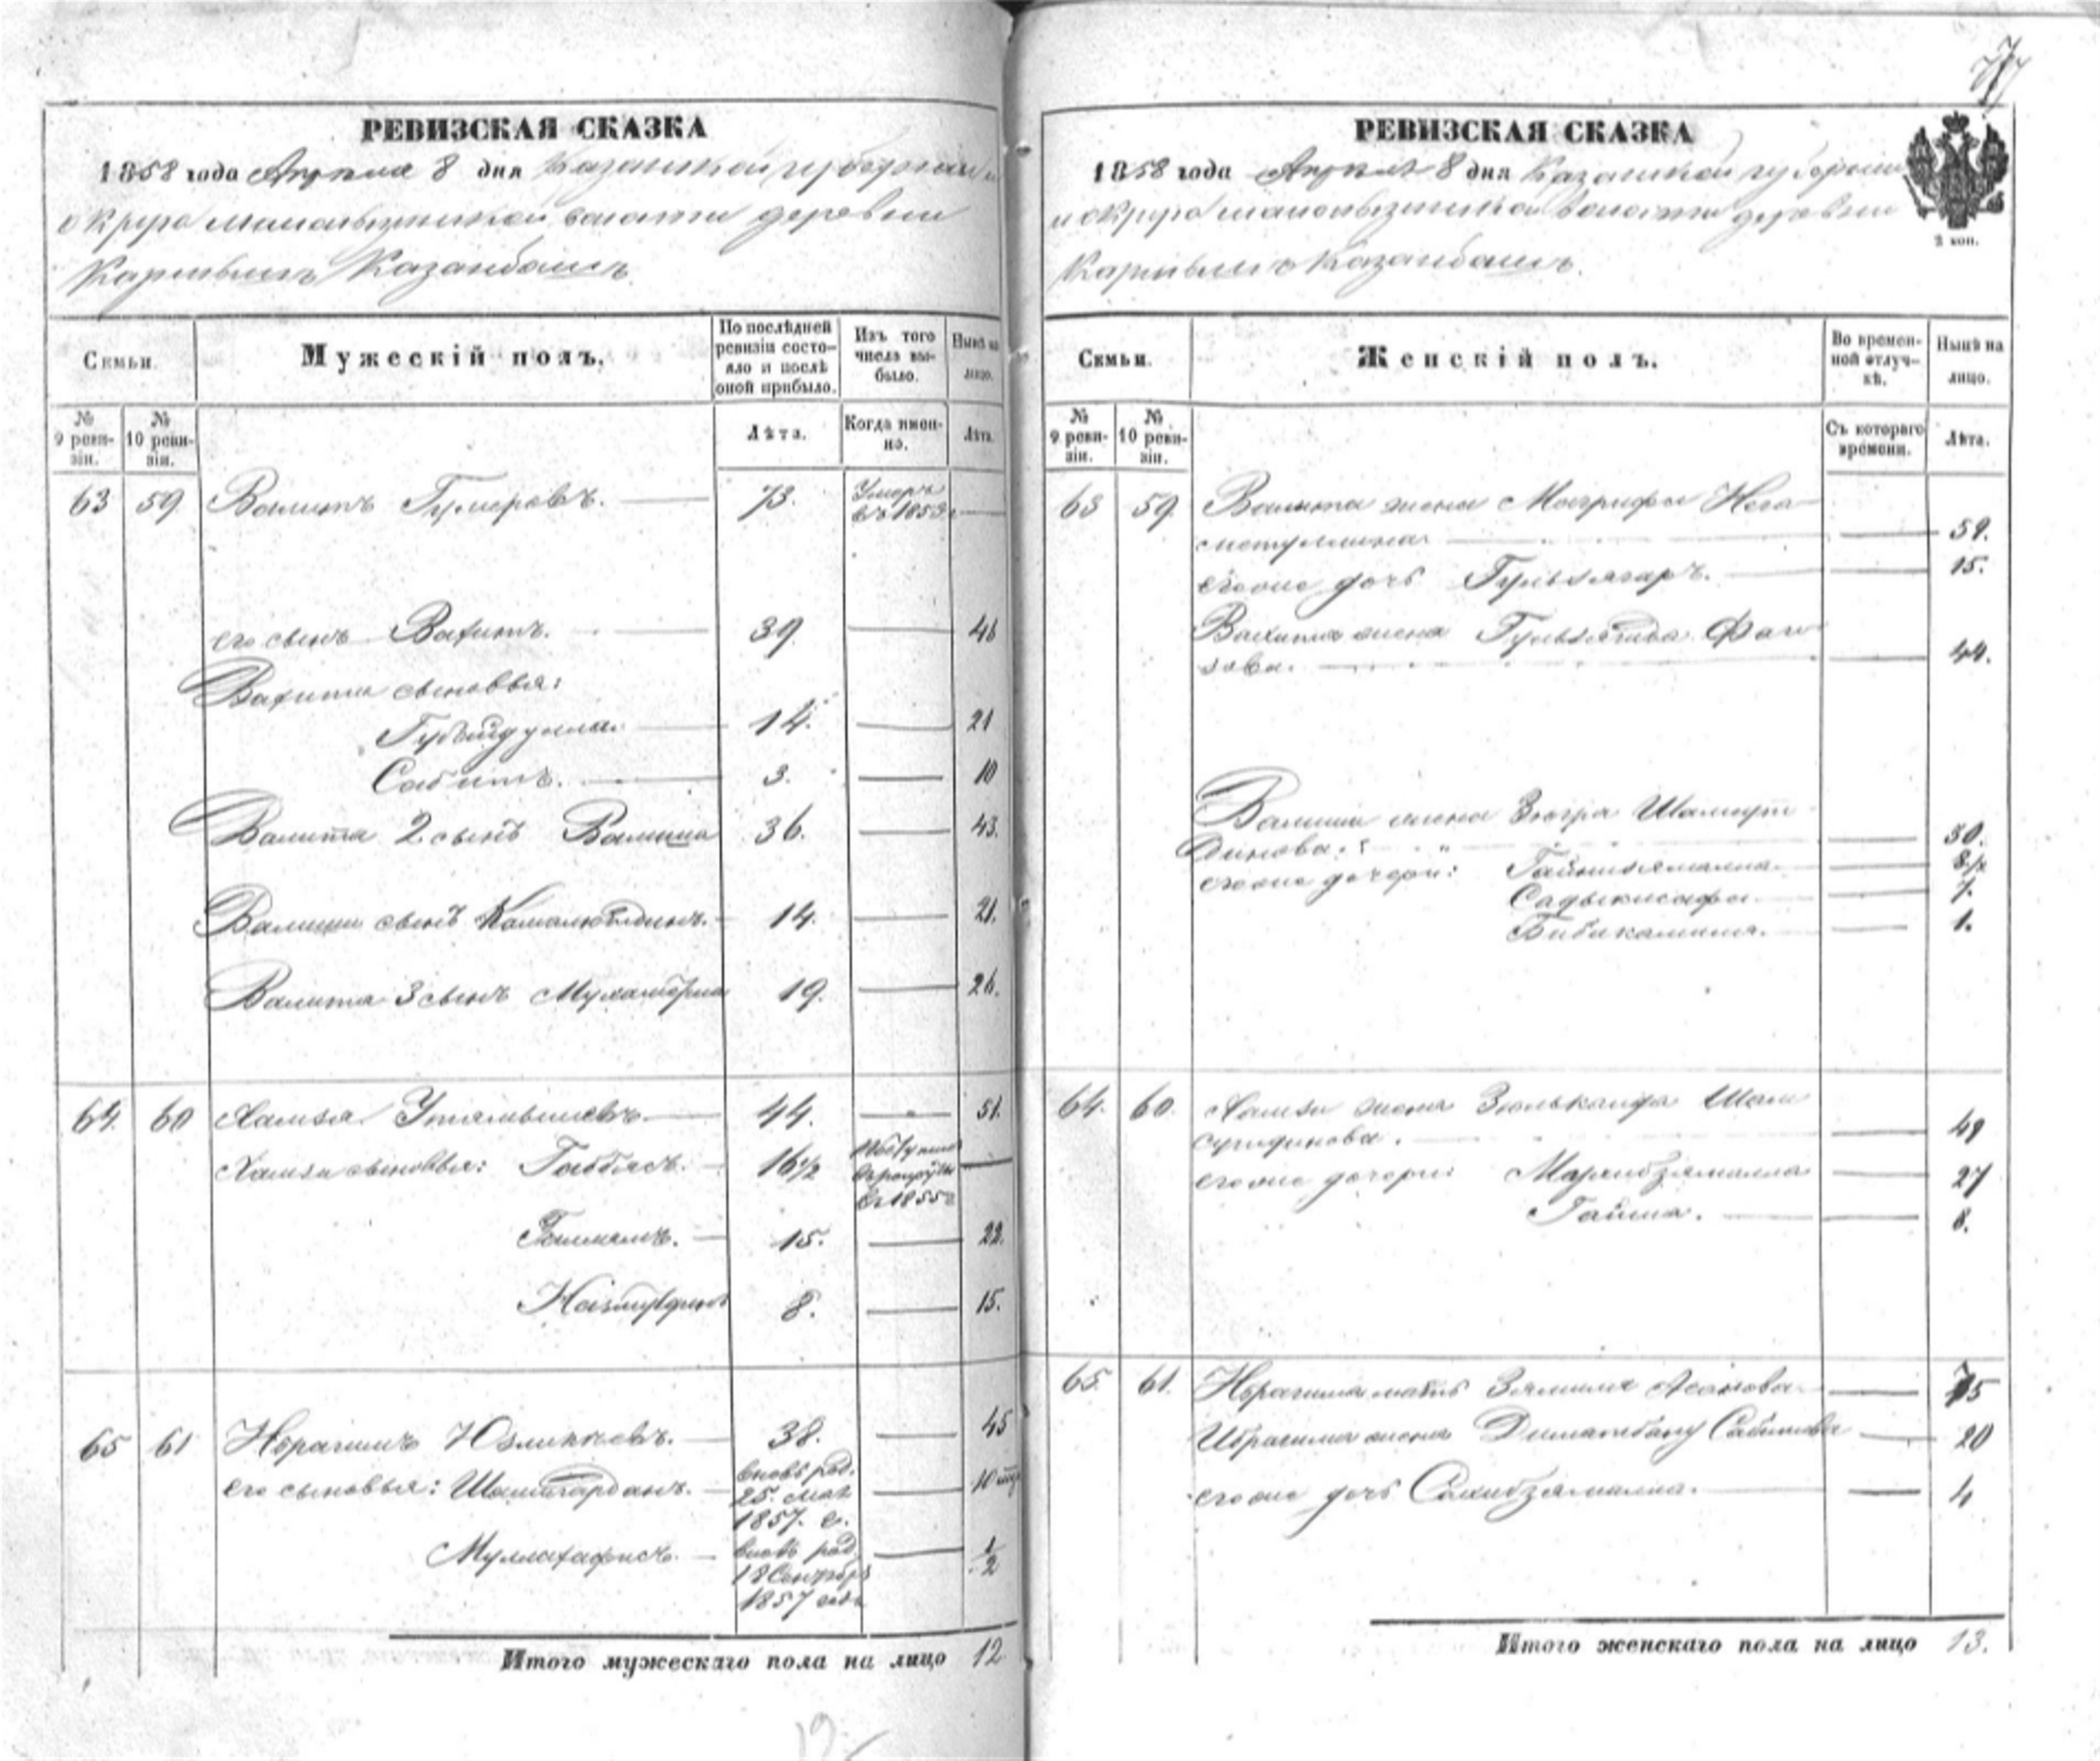 РЕВИЗСКАЯ СКАЗКА
1858 года Апреля 8 дня Казанской губернии и
округа волости деревни
Казанбашъ
Семьи.
Мужескій полъ.
По послѣдней ревизіи состояло и послѣ оной прибыло.
Изъ того числа выбыло.
Нынѣ на лицо.
№ 9 ревизіи.
№ 10 ревизіи.
Лѣта.
Когда именно.
Лѣта.
63 59 Валитъ Гумеровъ. 73. Умеръ
въ 1853 г
его сынъ Вахитъ. 39. 46
Вахита сыновья:
Губейдулла. 14. 21
Сабитъ. 3. 10
Валита 2 сынъ Валиша 36. 43.
Валиши сынъ Камалютдинъ. 14. 21.
Валита 3 сынъ 19. 26.
64. 60 Хамза Утямышевъ. 44. 51.
Хамзи сыновья: Габбясъ. 16 1/2
въ 1855 г
15. 22.
8. 15.
65 61 Ибрагимъ 38. 45
его сыновья: Шашгарданъ. вновь род.
25. мая
1857. г.
Муллахафисъ. вновь род. 1/2
18 Сентября
1857 года
Итого мужескаго пола на лицо 12
РЕВИЗСКАЯ СКАЗКА
1858 года Апреля 8 дня Казанской губернии
и округа волости деревни
Казанбашъ.
2 коп.
Семьи.
Женскій полъ.
Во временной отлучкѣ.
Нынѣ на лицо.
№ 9 ревизіи.
№ 10 ревизіи.
Съ котораго времени.
Лѣта.
63 59. Валита жена Магрифа Нега-
метуллина 59.
его же дочь Гульзягаръ. 15.
Вахита жена Гульзягида Фаи-
зова. 44.
Валиши жена Зюгра Шамсут-
динова: 30.
его же дочери: Гайнизямалла.
Садыкисафа. 7.
Бибикамиля. 1.
64. 60. Хамзи жена Зюлькаифа Шам
сутдинова. 49
его же дочери: Мархибзямалла 27
Гайша. 8.
65. 61. Ибрагима мать Зялиля Асанова 75
Ибрагима жена Диматбану Сабитова 20
его же дочь Сахибзямалла. 4
Итого женскаго пола на лицо 13.